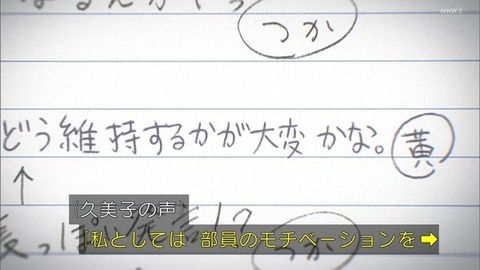 NHKE
つか
どう維持するかが大変かな。黄
↑
長っぽい発言!?
つか
(久美子の声)
「私としては 部員のモチベーションを➡